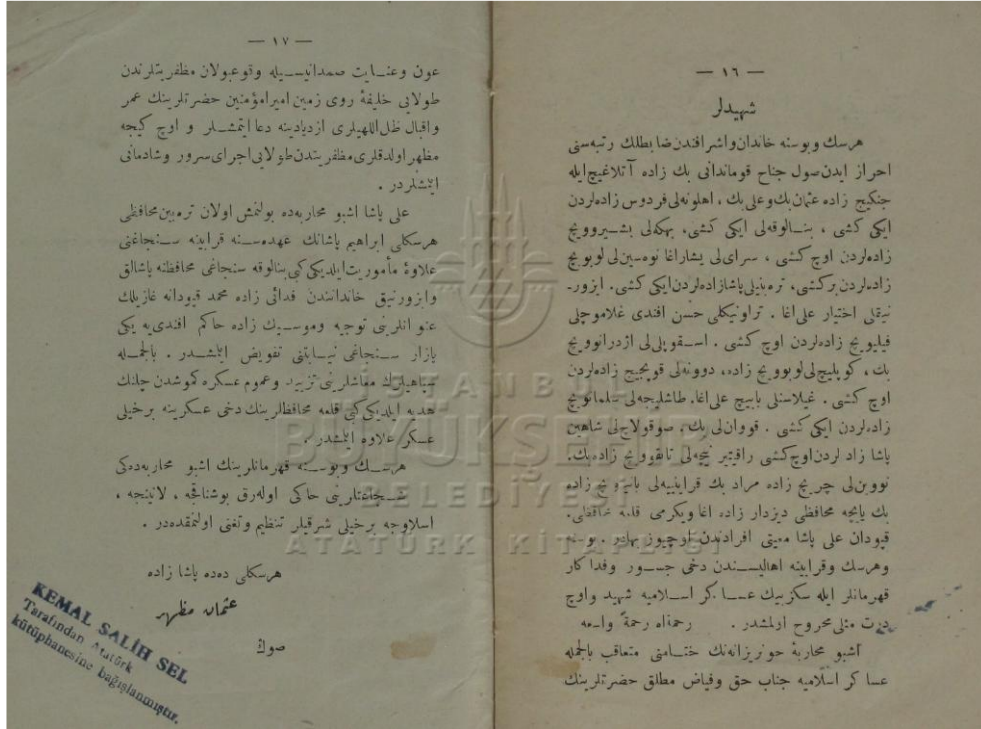 — ١٦ —
شهيدلر
هرسك وبوسنه خاندان واشرافندن ضابطلك رتبه‌سنى
احراز ايدن صول جناح قوماندانى بك زاده آتلاغيچ ايله
جنكيج زاده عثمان بك وعلى بك ، اهلونه‌لى فردوس زاده‌لردن
ايكى كشى ، بنــالوقه‌لى ايكى كشى، بهكه‌لى بشــيروويچ
زاده‌لردن اوچ كشى ، سراى‌لى يشاراغا نوه‌سين‌لى لوبويچ
زاده‌لردن بركشى، تره‌بينلى پاشازاده‌لردن ايكى كشى. ايزور-
نيقلى اختيار على اغا . تراونيكلى حسن افندى غلاموچلى
فيليويچ زاده‌لردن اوچ كشى . اســقوپلى‌لى اژدرانوويچ
بك ، كوپليچ‌لى لوبوويچ زاده، دوونه‌لى قوپچيچ زاده‌لردن
اوچ كشى . غيلاسنلى بابيچ على اغا. طاشليجه‌لى سلمانويچ
زاده‌لردن ايكى كشى . قووان‌لى بك ، صوقولاج‌لى شاهين
پاشا زاد لردن اوچ كشى تانقوويچ زاده بك.
نووين‌لى چريچ زاده مراد بك قراينيه‌لى زاده
بك يايچه محافظى ديزدار زاده اغا ويكرمى قلعه محافظى.
قپودان على پاشا معيتى افرادندن اوچيوز بهادر . بوسنه
وهرسك وقراينه اهاليســندن دخى جســور وفدا كار
قهرمانلر ايله سكزبيك عســا كر اســلاميه شهيد واوچ
درت مثلى مجروح اولمشدر . رحمةالله رحمة واسعه
اشبو محاربهٔ خونريزانه‌نك ختــامنى متعاقب بالجمله
عسا كر اسلاميه جناب حق وفياض مطلق حضرتلرينك
— ١٧ —
عون وعنــايت صمدانيســيله وقوعبولان مظفريتلرندن
طولايى خليفهٔ روى زمين اميرامؤمنين حضرتلرينك عمر
واقبال ظل‌اللهيلرى ازديادينه دعا ايتمشــلر و اوچ كيجه
مظهر اولدقلرى مظفريتدن طولايى اجراى سرور وشادمانى
ايتمشلردر .
على پاشا اشبو محاربه‌ده بولنمش اولان تره‌بين محافظى
هرسكلى ابراهيم پاشانك عهده‌ســنه قراينه ســنجاغنى
علاوهٔ مأموريت ايلديكى كبى بنالوقه سنجاغى محافظنه پاشالق
وايزورنيق خاندانندن فدائى زاده محمد قپودانه غازيلك
عنوانلرينى توجيه وموســيك زاده حاكم افندى‌يه يكى
بازار ســنجاغى نيــابتنى تفويض ايتمشــدر . بالجمــله
سپاهيلرك معاشلرينى تزييد وعموم عسكره كموشدن چلنك
هديه ايلديكى كبى قلعه محافظلرينك دخى عسكرينه برخيلى
عسكر علاوه ايتمشدر .
هرســك وبوســنه قهرمانلرينك اشبو محاربه‌ده‌كى
شــجاعتلرينى حاكى اوله‌رق بوشناقجه ، لاتينجه ،
اسلاوجه برخيلى شرقيلر تنظيم وتغنى اولنمقده‌در .
هرسكلى دده پاشا زاده
عثمان مظهر
صوك
KEMAL SALİH SEL
Tarafından Atatürk
kütüphanesine bağışlanmıştır.
İSTANBUL
BÜYÜKŞEHİR
BELEDİYESİ
ATATÜRK KİTAPLIĞI